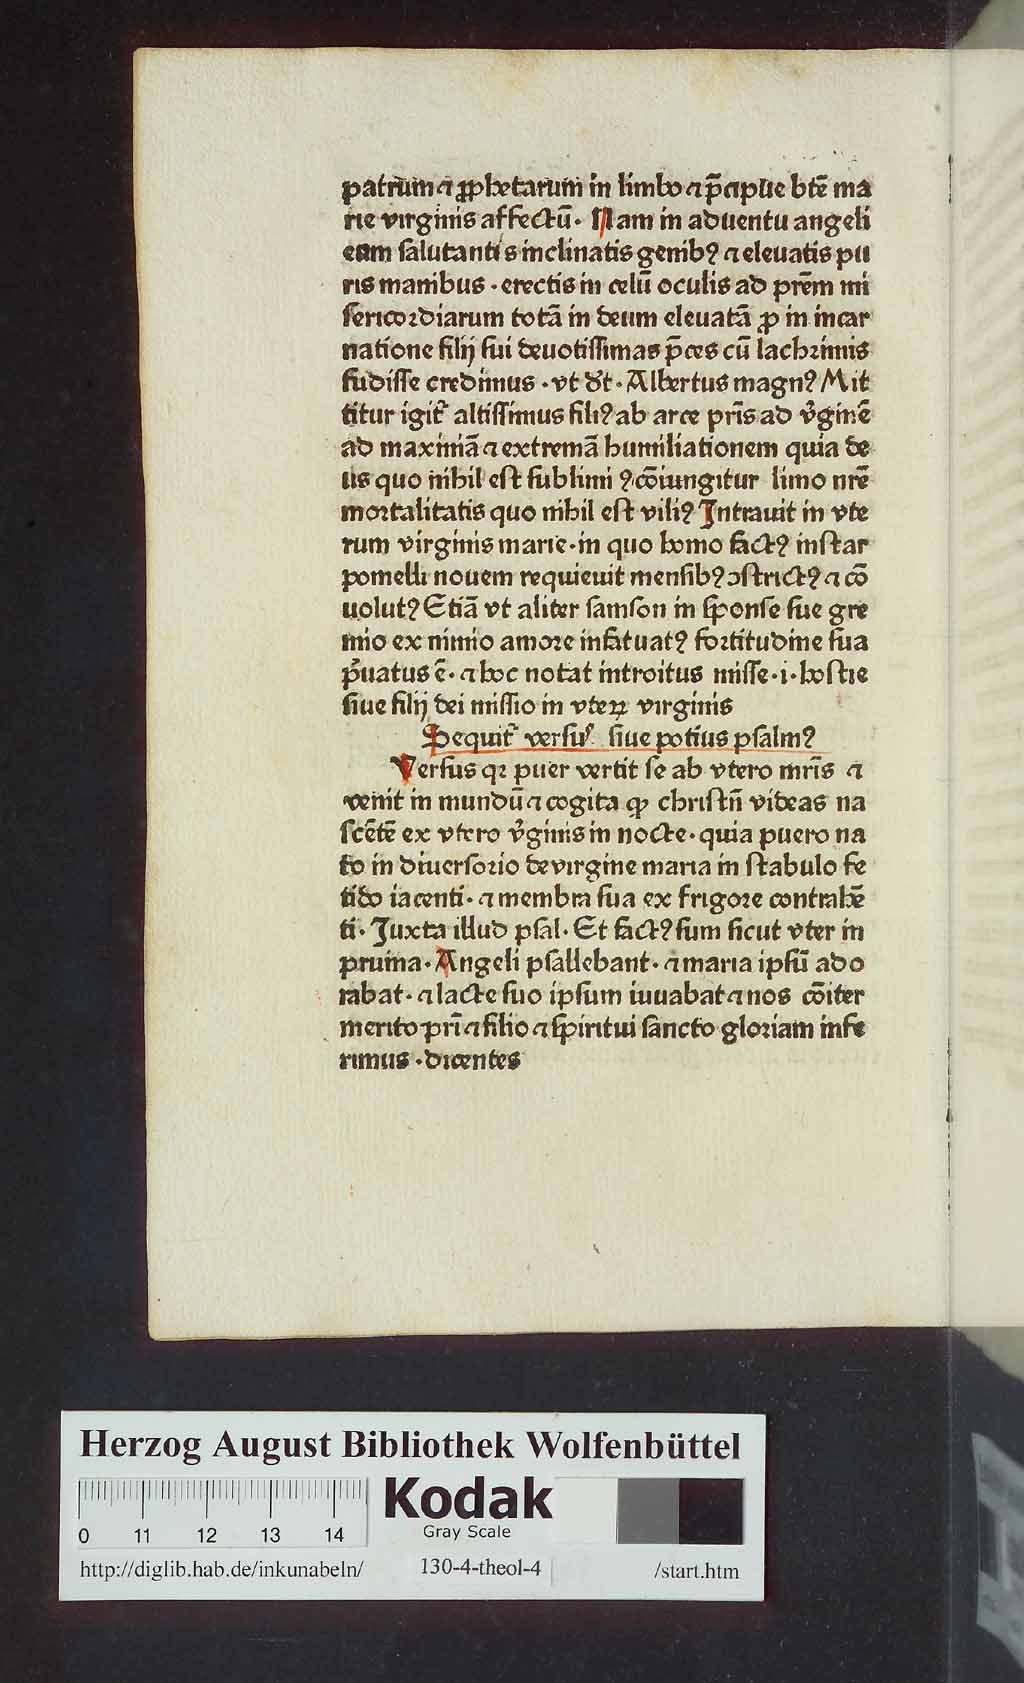 patrum ⁊ ꝓphetarum in limbo ⁊ p̄cipue btē ma
rie virginis affectū· Nam in aduentu angeli
eam salutantis inclinatis genibꝰ ⁊ eleuatis pu
ris manibus · erectis in celū oculis ad prēm mi
sericordiarum totā in deum eleuatā ꝓ in incar
natione filij sui deuotissimas p̄ces cū lachrimis
fudisse credimus · vt dt̄ · Albertus magnꝰ Mit
titur igit᷑ altissimus filiꝰ ab arce pr̄is ad v̓ginē
ad maximā ⁊ extremā humiliationem quia de
us quo nihil est sublimiꝰ cōiungitur limo nr̄e
mortalitatis quo nihil est viliꝰ Intrauit in vte
rum virginis marie· in quo homo factꝰ instar
pomelli nouem requieuit mensibꝰ ↄstrictꝰ ⁊ cō
uolutꝰ Etiā vt aliter samson in sponse sue gre
mio ex nimio amore infatuatꝰ fortitudine sua
p̓uatus ē· ⁊ hoc notat introitus misse ·i· hostie
siue filij dei missio in vteꝝ virginis
Sequit᷑ versus siue potius psalmꝰ
Versus qꝛ puer vertit se ab vtero mr̄is ⁊
venit in mundū ⁊ cogita ꝙ christū videas na
scētē ex vtero v̓ginis in nocte· quia puero na
to in diuersorio de virgine maria in stabulo fe
tido iacenti· ⁊ membra sua ex frigore contrahē
ti· Juxta illud psal· Et factꝰ sum sicut vter in
pruina· Angeli psallebant· ⁊ maria ipsū ado
rabat· ⁊ lacte suo ipsum iuuabat ⁊ nos cōiter
merito pr̄i ⁊ filio ⁊ spiritui sancto gloriam infe
rimus · dicentes
Herzog August Bibliothek Wolfenbüttel
0 11 12 13 14
Kodak
Gray Scale
http://diglib.hab.de/inkunabeln/ 130-4-theol-4 /start.htm